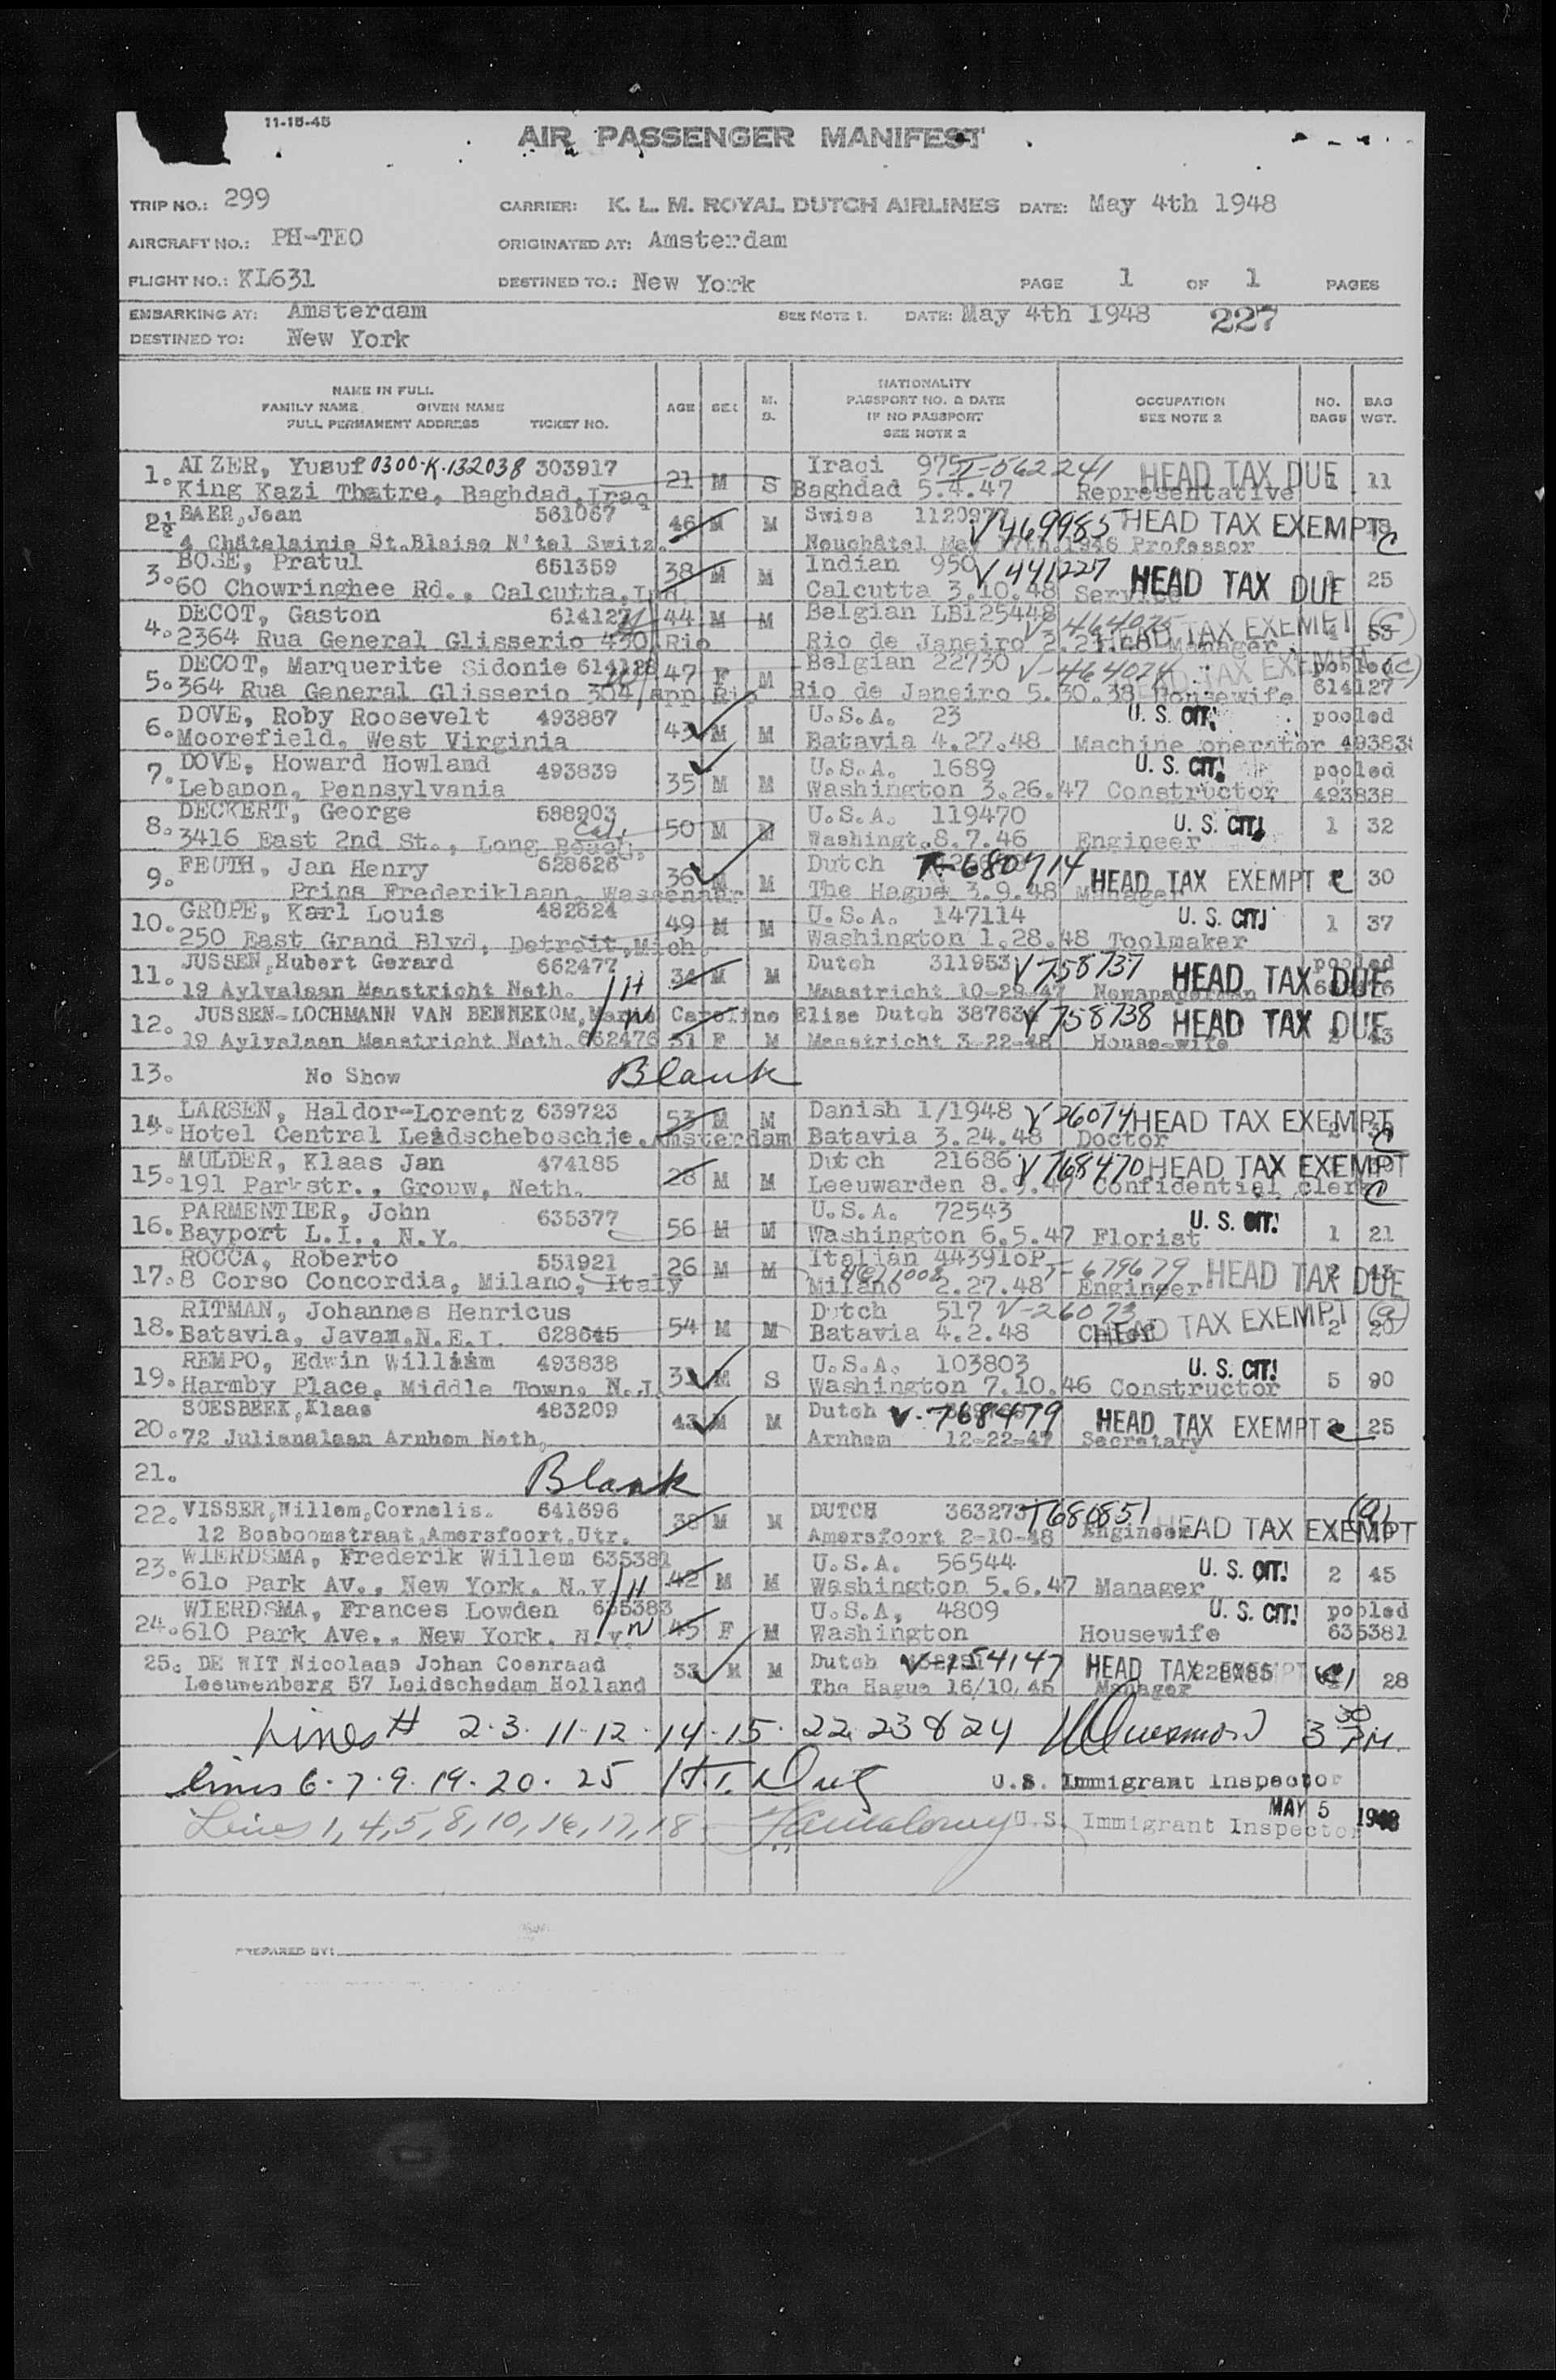 11-15-45
AIR PASSENGER MANIFEST
TRIP NO.: 299 CARRIER: K. L. M. ROYAL DUTCH AIRLINES DATE: May 4th 1948
AIRCRAFT NO.: PH-TEO ORIGINATED AT: Amsterdam
FLIGHT NO.: KL631 DESTINED TO.: New York PAGE 1 OF 1 PAGES
EMBARKING AT: Amsterdam SEE NOTE 1. DATE: May 4th 1948 227
DESTINED TO: New York
NAME IN FULL
FAMILY NAME GIVEN NAME
FULL PERMANENT ADDRESS TICKET NO. AGE SEX M. S. NATIONALITY PASSPORT NO. & DATE IF NO PASSPORT SEE NOTE 2 OCCUPATION SEE NOTE 2 NO. BAGS BAG WGT.
1. AIZER, Yusuf 0300-K-132038 303917 21 M S Iraqi 975 T-562241 HEAD TAX DUE 11
King Kazi Theatre, Baghdad, Iraq Baghdad 5.4.47 Representative
2. BAER, Jean 561067 46 M M Swiss V 469985 HEAD TAX EXEMPT C
4 Châtelainie St.Blaise N'tel Switz. Neuchâtel May 1946 Professor
3. BOSE, Pratul 651359 38 M M Indian 950 V 441227 HEAD TAX DUE 25
60 Chowringhee Rd., Calcutta, Ind. Calcutta 3.10.48 Service
4. DECOT, Gaston 614127 44 M M Belgian LB125448 HEAD TAX EXEMPT (C)
2364 Rua General Glisserio 430 Rio Rio de Janeiro Manager
5. DECOT, Marquerite Sidonie 614128 47 F M Belgian 22730 V-464024 HEAD TAX EXEMPT (C) pooled
364 Rua General Glisserio 304 app Rio Rio de Janeiro 5.30.38 Housewife 614127
6. DOVE, Roby Roosevelt 493887 43 M M U.S.A. 23 U. S. CIT. pooled
Moorefield, West Virginia Batavia 4.27.48 Machine operator 493838
7. DOVE, Howard Howland 493839 35 M M U.S.A. 1689 U. S. CIT. pooled
Lebanon, Pennsylvania Washington 3.26.47 Constructor 493838
8. DECKERT, George 588903 50 M M U.S.A. 119470 U. S. CIT. 1 32
3416 East 2nd St., Long Beach, Cal. Washingt. 8.7.46 Engineer
9. FEUTH, Jan Henry 628626 36 M M Dutch T-680714 HEAD TAX EXEMPT C 30
Prins Frederiklaan, Wassenaar The Hague 3.9.48 Manager
10. GRUPE, Karl Louis 482624 49 M M U.S.A. 147114 U. S. CIT. 1 37
250 East Grand Blvd, Detroit, Mich. Washington 1.28.48 Toolmaker
11. JUSSEN, Hubert Gerard 662477 34 M M Dutch 311953 V 758737 HEAD TAX DUE pooled
19 Aylvalaan Maastricht Neth. H Maastricht 10-29-47 Newspaperman
12. JUSSEN-LOCHMANN VAN BENNEKOM, Marne Caroline Elise Dutch 38763 V 758738 HEAD TAX DUE
19 Aylvalaan Maastricht Neth. 662476 31 F M W Maastricht 3-22-48 House-wife 2 43
13. No Show Blank
14. LARSEN, Haldor-Lorentz 639723 53 M M Danish 1/1948 V 26074 HEAD TAX EXEMPT C
Hotel Central Leidscheboschje, Amsterdam Batavia 3.24.48 Doctor
15. MULDER, Klaas Jan 474185 28 M M Dutch 21686 V 768470 HEAD TAX EXEMPT C
191 Parkstr., Grouw, Neth. Leeuwarden 8.9.47 Confidential clerk
16. PARMENTIER, John 635377 56 M M U.S.A. 72543 U. S. CIT. 1 21
Bayport L.I., N.Y. Washington 6.5.47 Florist
17. ROCCA, Roberto 551921 26 M M Italian 443910P T-679679 HEAD TAX DUE
8 Corso Concordia, Milano, Italy Milano 2.27.48 Engineer
18. RITMAN, Johannes Henricus Dutch 517 V-26073 HEAD TAX EXEMPT (a)
Batavia, Javan.N.E.I. 628645 54 M M Batavia 4.2.48 Chief 2 20
19. REMPO, Edwin William 493838 31 M S U.S.A. 103803 U. S. CIT. 5 90
Harmby Place, Middle Town, N.J. Washington 7.10.46 Constructor
20. SOESBEEK, Klaas 483209 43 M M Dutch V-768479 HEAD TAX EXEMPT C 25
72 Julianalaan Arnhem Neth, Arnhem 12-22-47 Secretary
21. Blank
22. VISSER, Willem, Cornelis. 641696 38 M M DUTCH 363273 T680851 HEAD TAX EXEMPT (a)
12 Bosboomstraat, Amersfoort, Utr. Amersfoort 2-10-48 Engineer
23. WIERDSMA, Frederik Willem 635381 42 M M U.S.A. 56544 U. S. CIT. 2 45
610 Park AV., New York. N.Y. H Washington 5.6.47 Manager
24. WIERDSMA, Frances Lowden 635383 45 F M U.S.A. 4809 U. S. CIT. pooled
610 Park Ave., New York. N.Y. W Washington Housewife 635381
25. DE WIT Nicolaas Johan Coenraad 33 M M Dutch V-154147 HEAD TAX EXEMPT 28
Leeuwenberg 57 Leidschedam Holland The Hague 16/10/45 Manager
Lines # 2·3·11·12·14·15·22 23 & 24 3 30 P.M.
lines 6·7·9·19·20·25 U.S. Immigrant Inspector
Lines 1, 4, 5, 8, 10, 16, 17, 18 U.S. Immigrant Inspector MAY 5 1948
PREPARED BY: